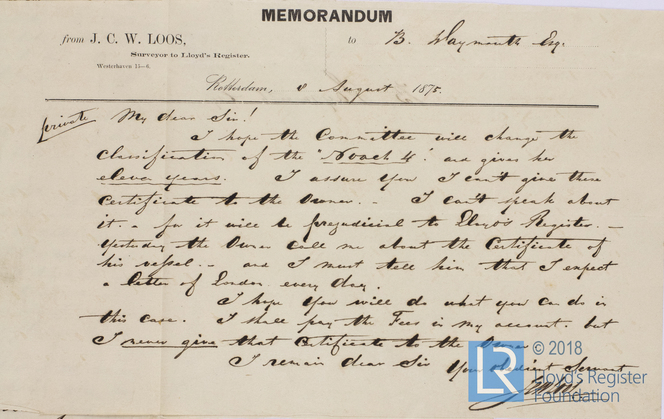 MEMORANDUM
from J. C. W. LOOS,
to B. Waymouth Esq.
Surveyor to Lloyd's Register.
Westerhaven 11—6.
Rotterdam, 8 August 1875.
private
My dear Sir!
I hope the Committee will change the
classification of the "Noach 4". and gives her
eleven years. I assure you I can't give there
Certificate to the Owner. - I can't speak about
it. - for it will be prejudicial to Lloyd's Register. -
Yesterday the Owner call me about the Certificate of
his vessel. - and I must tell him that I expect
a letter of London every day.
I hope you will do what you can do in
this case. I shall pay the Fees in my account. but
I never give that Certificate to the Owner
I remain dear Sir Your obedient Servant
LR © 2018
Lloyd's Register
Foundation